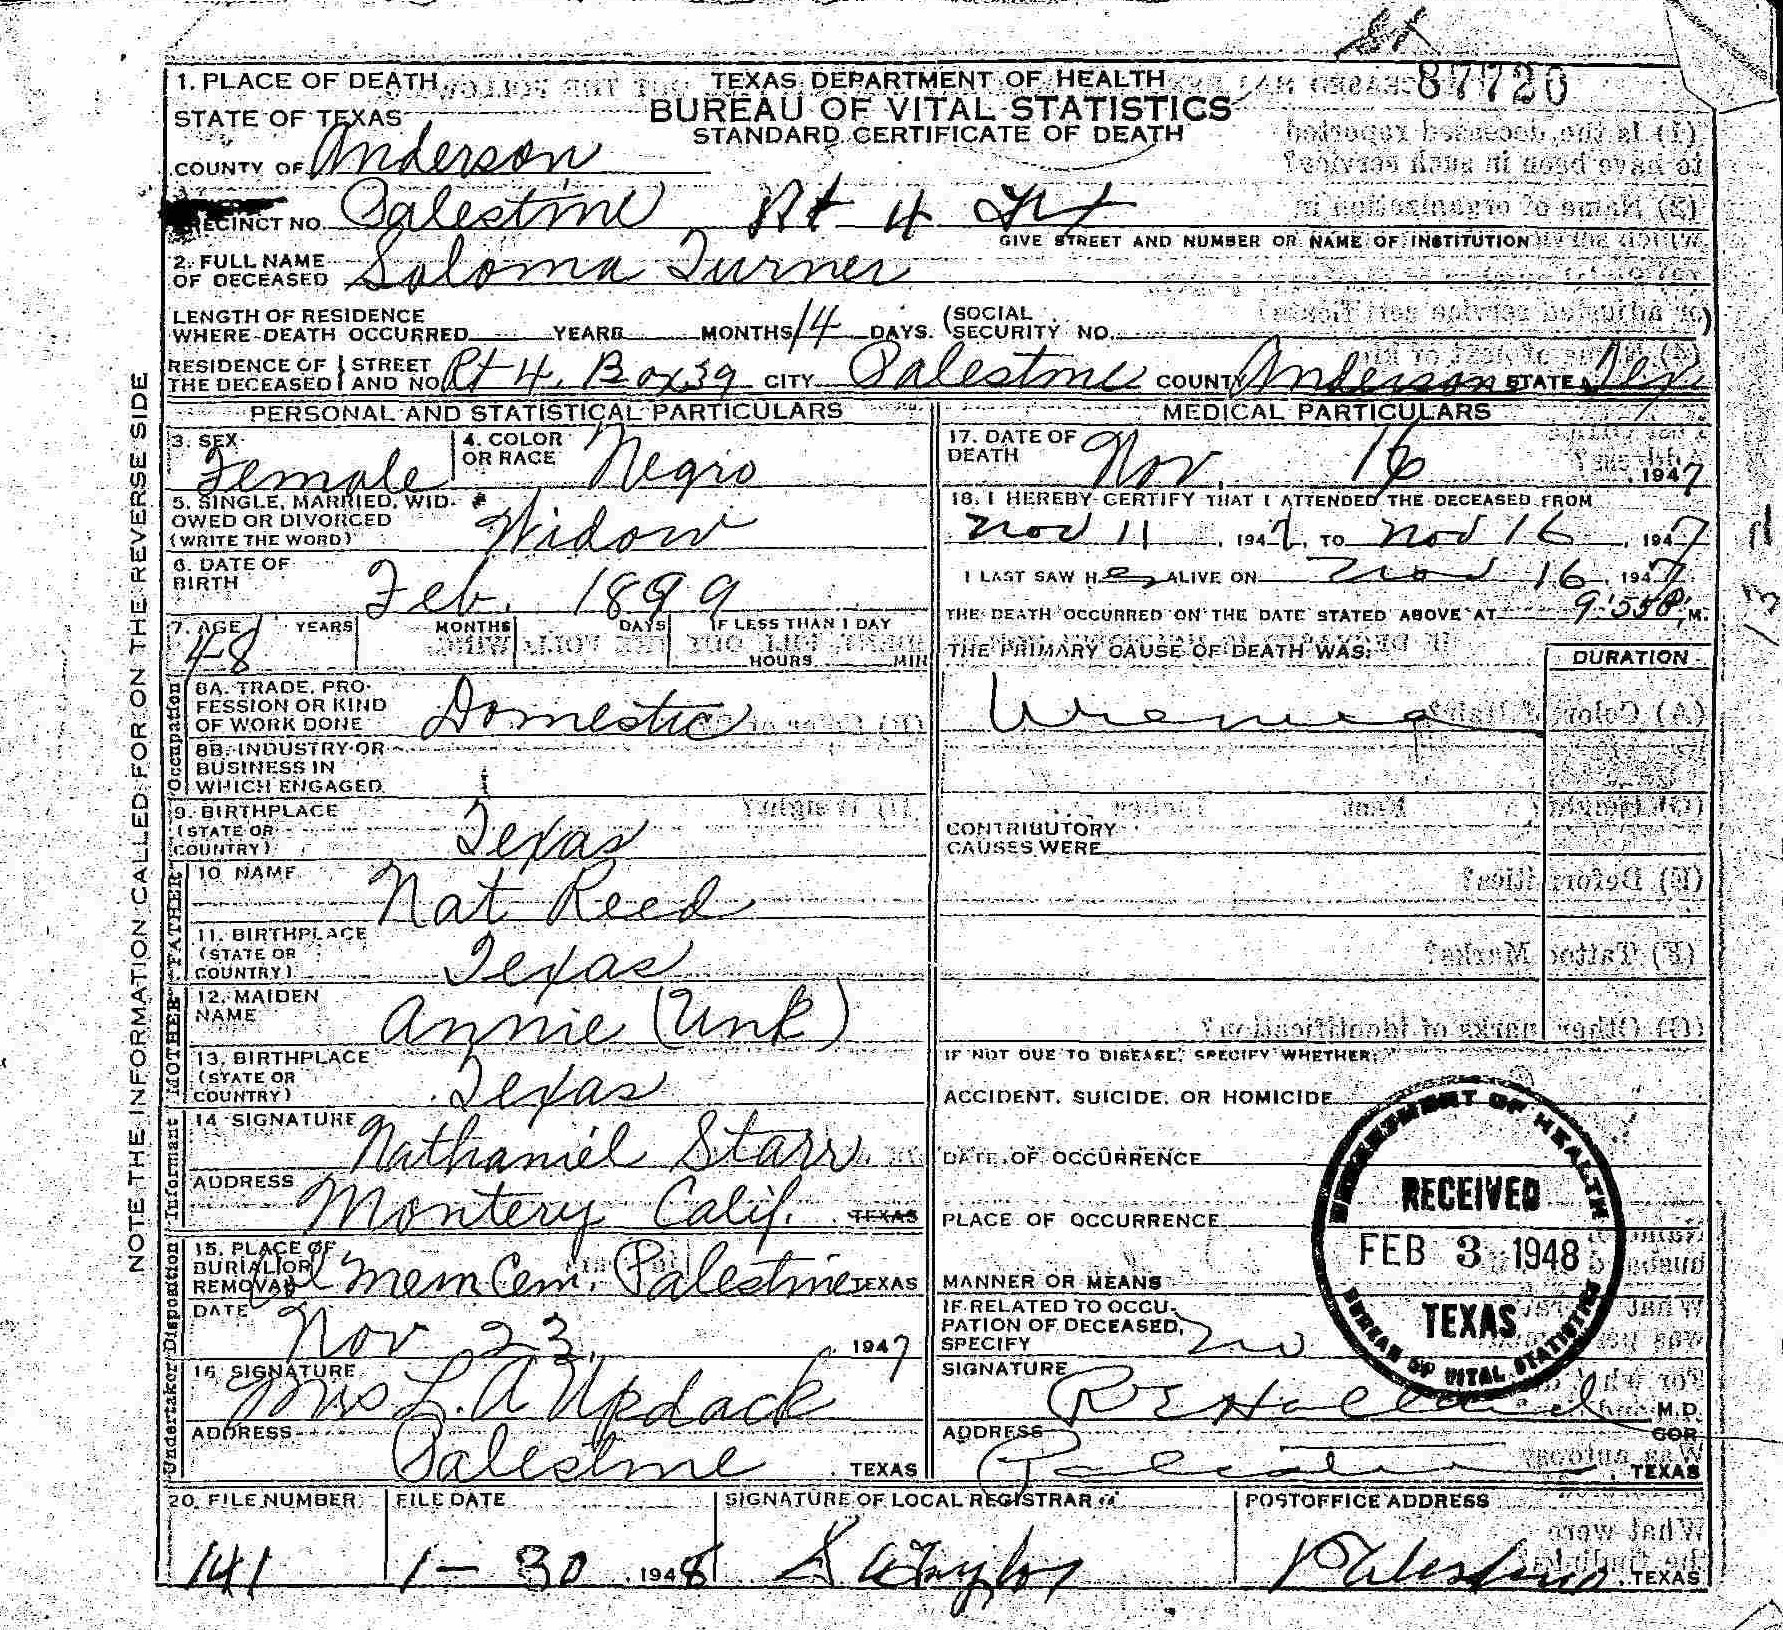 87720
1. PLACE OF DEATH
TEXAS DEPARTMENT OF HEALTH
STATE OF TEXAS
BUREAU OF VITAL STATISTICS
STANDARD CERTIFICATE OF DEATH
COUNTY OF Anderson
PRECINCT NO. Palestine Rt 4
GIVE STREET AND NUMBER OR NAME OF INSTITUTION
2. FULL NAME OF DECEASED Saloma Turner
LENGTH OF RESIDENCE WHERE DEATH OCCURRED YEARS MONTHS 14 DAYS. (SOCIAL SECURITY NO. )
RESIDENCE OF THE DECEASED STREET AND NO. Rt 4, Box 39 CITY Palestine COUNTY Anderson STATE Tex
PERSONAL AND STATISTICAL PARTICULARS
3. SEX Female
4. COLOR OR RACE Negro
5. SINGLE, MARRIED, WIDOWED OR DIVORCED (WRITE THE WORD) Widow
6. DATE OF BIRTH Feb. 1899
7. AGE 48 YEARS MONTHS DAYS IF LESS THAN 1 DAY HOURS MIN
Occupation
8A. TRADE, PROFESSION OR KIND OF WORK DONE Domestic
8B. INDUSTRY OR BUSINESS IN WHICH ENGAGED
9. BIRTHPLACE (STATE OR COUNTRY) Texas
FATHER
10. NAME Nat Reed
11. BIRTHPLACE (STATE OR COUNTRY) Texas
MOTHER
12. MAIDEN NAME Annie (Unk)
13. BIRTHPLACE (STATE OR COUNTRY) Texas
Informant
14 SIGNATURE Nathaniel Starr
ADDRESS Montery Calif. TEXAS
Disposition
15. PLACE OF BURIAL OR REMOVAL Mem Cem. Palestine TEXAS
DATE Nov 23, 1947
Undertaker
16 SIGNATURE Mrs L. A Updack
ADDRESS Palestine, TEXAS
MEDICAL PARTICULARS
17. DATE OF DEATH Nov. 16, 1947
18. I HEREBY CERTIFY THAT I ATTENDED THE DECEASED FROM
Nov 11, 1947, TO Nov 16, 1947
I LAST SAW HER ALIVE ON Nov 16, 1947
THE DEATH OCCURRED ON THE DATE STATED ABOVE AT 9:55 P. M.
THE PRIMARY CAUSE OF DEATH WAS: DURATION
Uremia
CONTRIBUTORY CAUSES WERE
IF NOT DUE TO DISEASE, SPECIFY WHETHER:
ACCIDENT, SUICIDE, OR HOMICIDE
DATE OF OCCURRENCE
PLACE OF OCCURRENCE
MANNER OR MEANS
IF RELATED TO OCCUPATION OF DECEASED, SPECIFY no
SIGNATURE M.D.
COR
ADDRESS Palestine, TEXAS
DEPARTMENT OF HEALTH
RECEIVED
FEB 3 1948
TEXAS
BUREAU OF VITAL STATISTICS
20. FILE NUMBER 141
FILE DATE 1-30, 1948
SIGNATURE OF LOCAL REGISTRAR
POSTOFFICE ADDRESS Palestine, TEXAS
NOTE THE INFORMATION CALLED FOR ON THE REVERSE SIDE